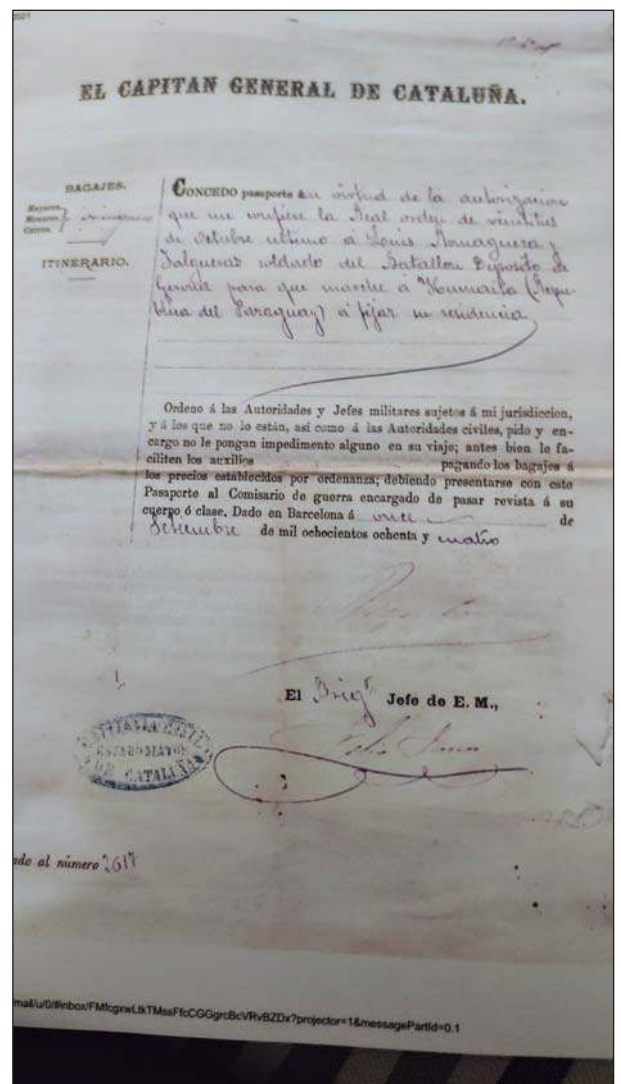 2021
EL CAPITAN GENERAL DE CATALUÑA.
BAGAJES.
Mayores.
Menores. ninguno
Carros.
ITINERARIO.
CONCEDO pasaporte en virtud de la autorizacion
que me confiere la Real orden de veintitres
de Octubre ultimo á Luis Romaguera y
Salgueras soldado del Batallon Deposito de
Gerona para que marche á Humaita (Repu-
blica del Paraguay) á fijar su residencia
Ordeno á las Autoridades y Jefes militares sujetos á mi jurisdiccion,
y á los que no lo están, así como á las Autoridades civiles, pido y en-
cargo no le pongan impedimento alguno en su viaje; antes bien le fa-
ciliten los auxilios pagando los bagajes á
los precios establecidos por ordenanza; debiendo presentarse con este
Pasaporte al Comisario de guerra encargado de pasar revista á su
cuerpo ó clase. Dado en Barcelona á once de
Setiembre de mil ochocientos ochenta y cuatro
El Brigr Jefe de E. M.,
ESTADO MAYOR
DE CATALUÑA
ado al número 2617
mail/u/0/#inbox/FMfcgxwLtkTMssFfcCGGgrcBcVRvBZDx?projector=1&messagePartId=0.1